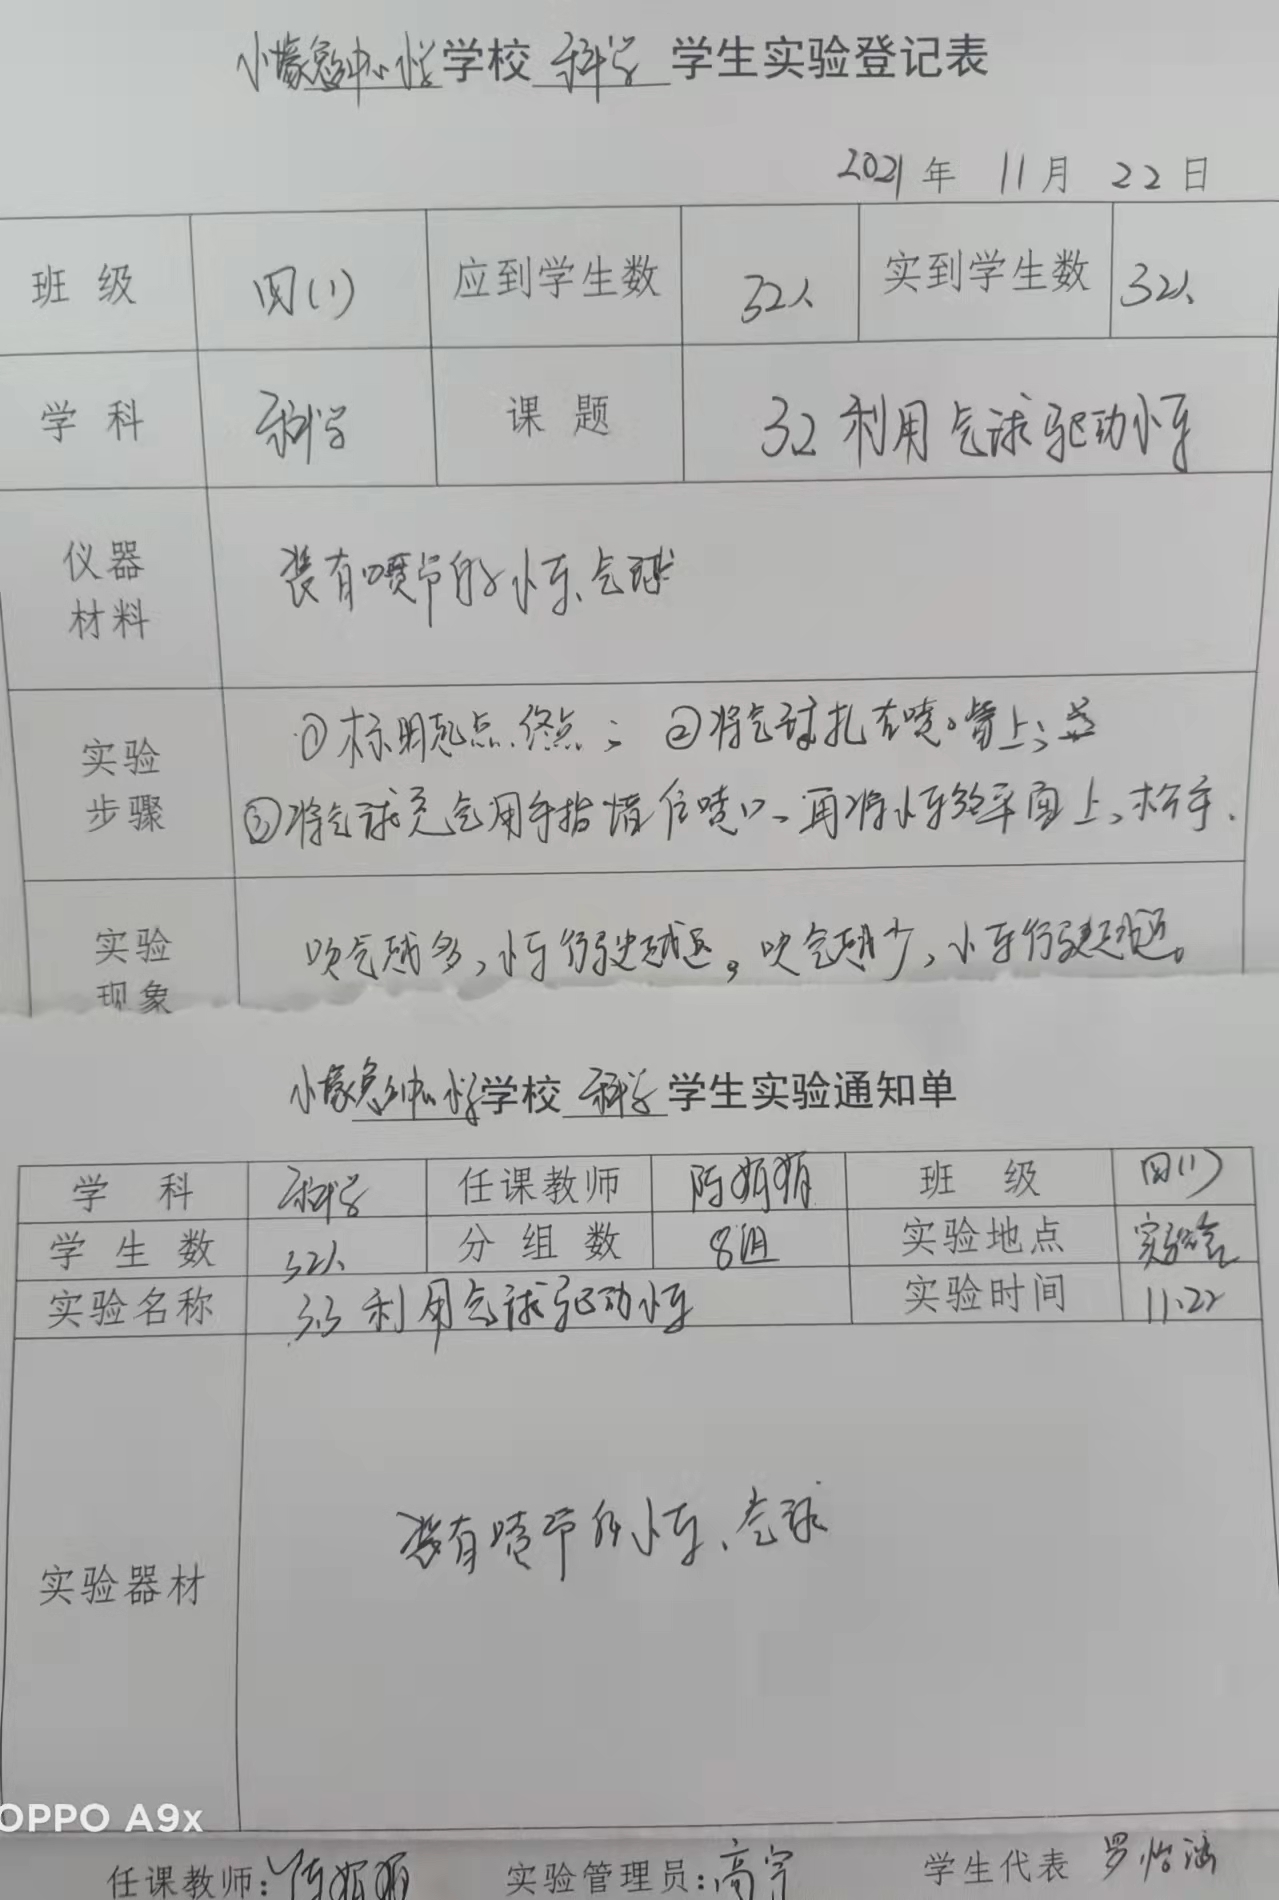 小 中心小学学校 科学 学生实验登记表
2021年 11月 22日
班 级 四(1) 应到学生数 32人 实到学生数 32人
学 科 科学 课 题 3.2 利用气球驱动小车
仪器
材料
装有喷 的小车、气球
实验
步骤
①标明起点、终点; ②将气球扎在喷 管上;
③将气球充气用手指堵住喷口、再将小车 平面上、松手.
实验
现象
吹气越多,小车行驶越远。吹气越少,小车行驶越近。
小 中心小学学校 科学 学生实验通知单
学 科 科学 任课教师 陈娟娟 班 级 四(1)
学 生 数 32人 分 组 数 8组 实验地点 实验室
实验名称 3.3 利用气球驱动小车 实验时间 11.22
实验器材
装有喷 的小车、气球
OPPO A9x
任课教师:陈娟娟 实验管理员:高宇 学生代表 罗怡涵